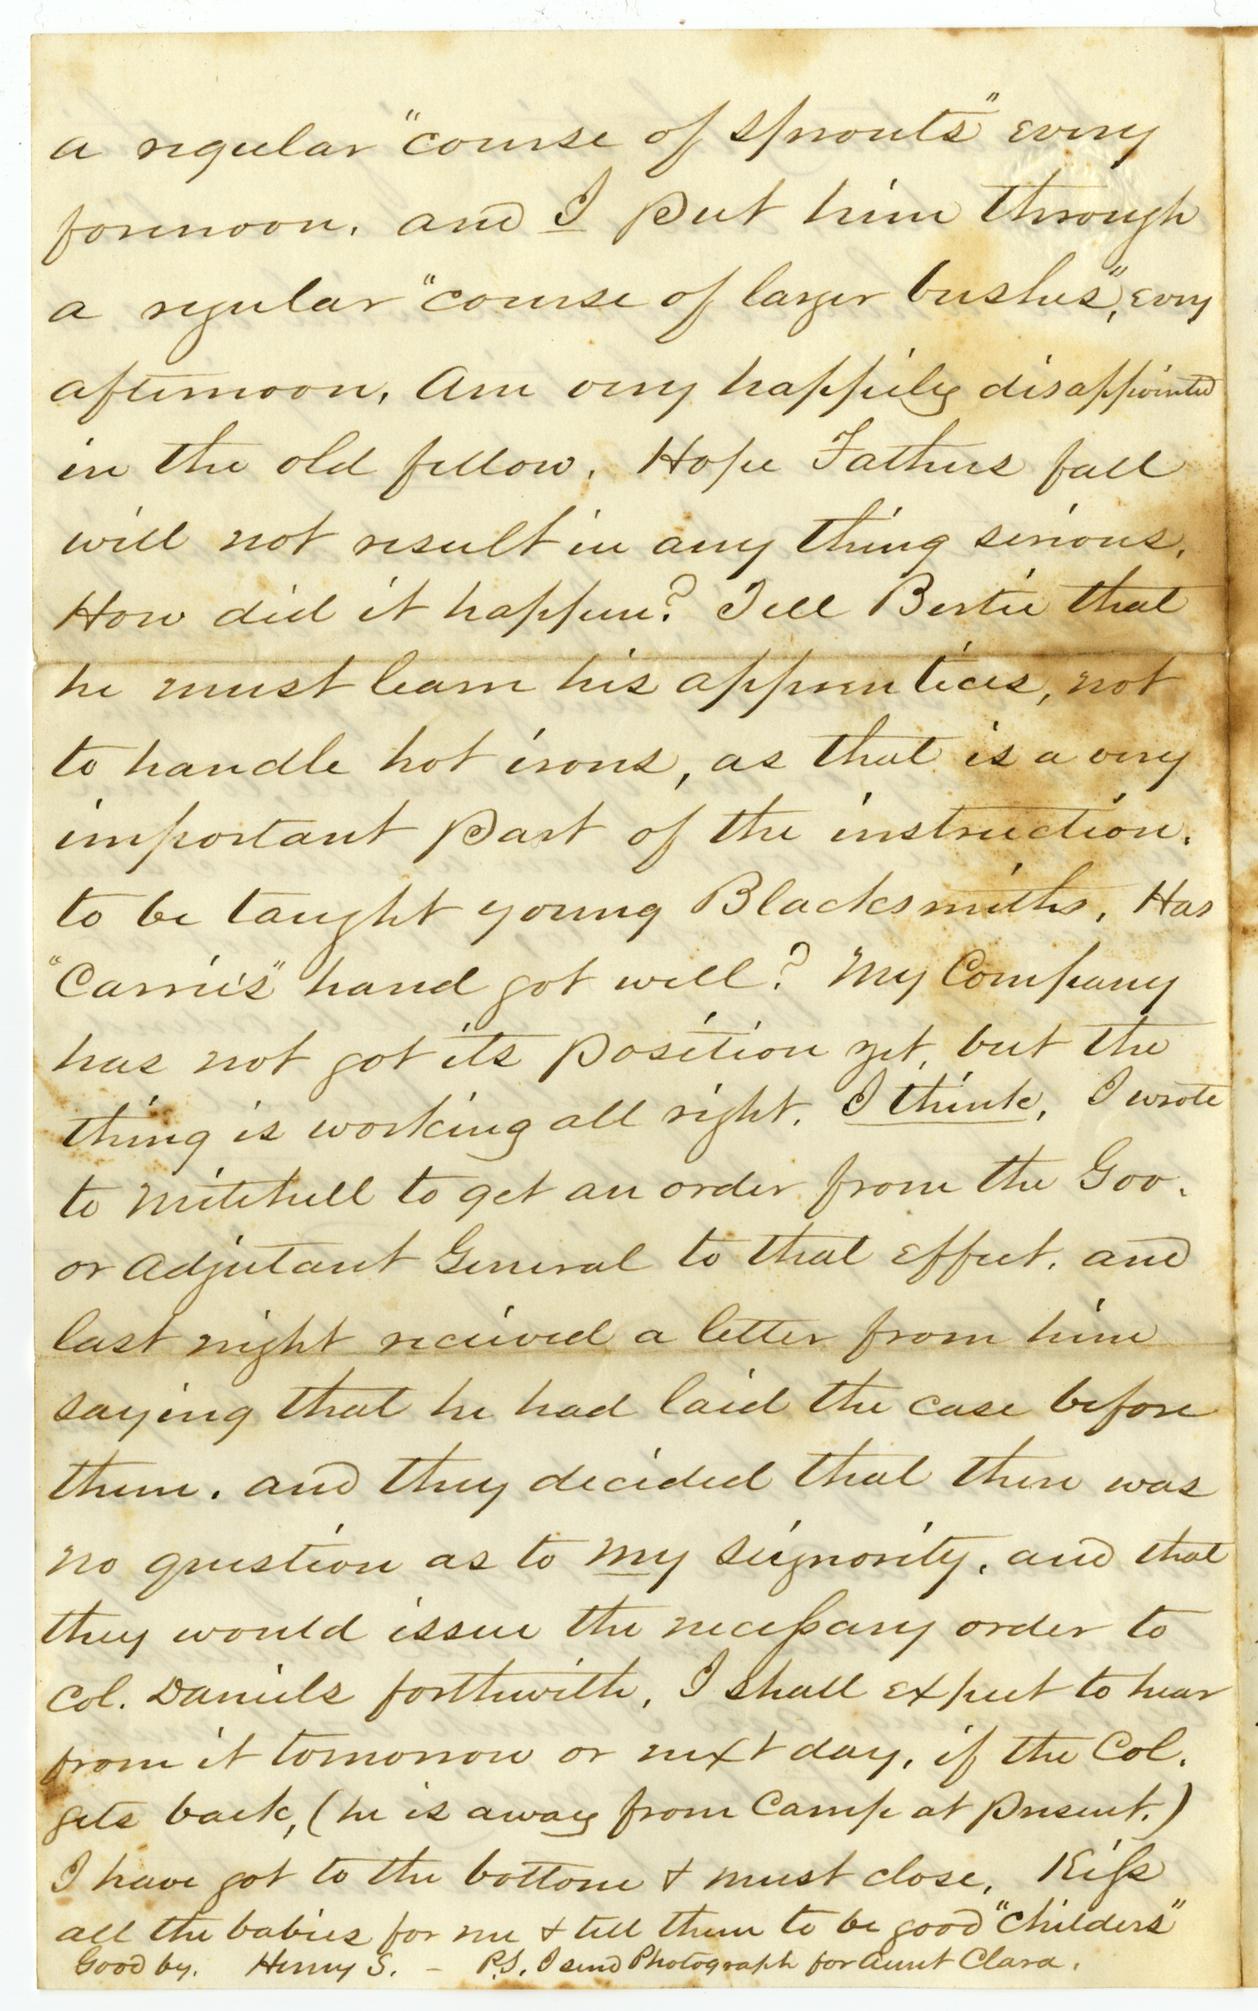 a regular "course of sprouts" every
forenoon. and I put him through
a regular "course of larger bushes", every
afternoon. Am very happily disappointed
in the old fellow. Hope Fathers fall
will not result in any thing serious.
How did it happen? Tell Bertie that
he must learn his apprentices, not
to handle hot irons, as that is a very
important part of the instruction.
to be taught young Blacksmiths. Has
"Carrie's" hand got well? My Company
has not got its position yet, but the
thing is working all right. I think. I wrote
to Mitchell to get an order from the Gov.
or Adjutant General to that effect. and
last night recieved a letter from him
saying that he had laid the case before
them. and they decided that there was
no question as to my seignority. and that
they would issue the necessary order to
Col. Daniels forthwith. I shall expect to hear
from it tomorrow or next day, if the Col.
gets back, (he is away from Camp at present.)
I have got to the bottom & must close. Kiss
all the babies for me & tell them to be good "Childers"
Good by. Henry S. - P.S. I send Photograph for Aunt Clara.